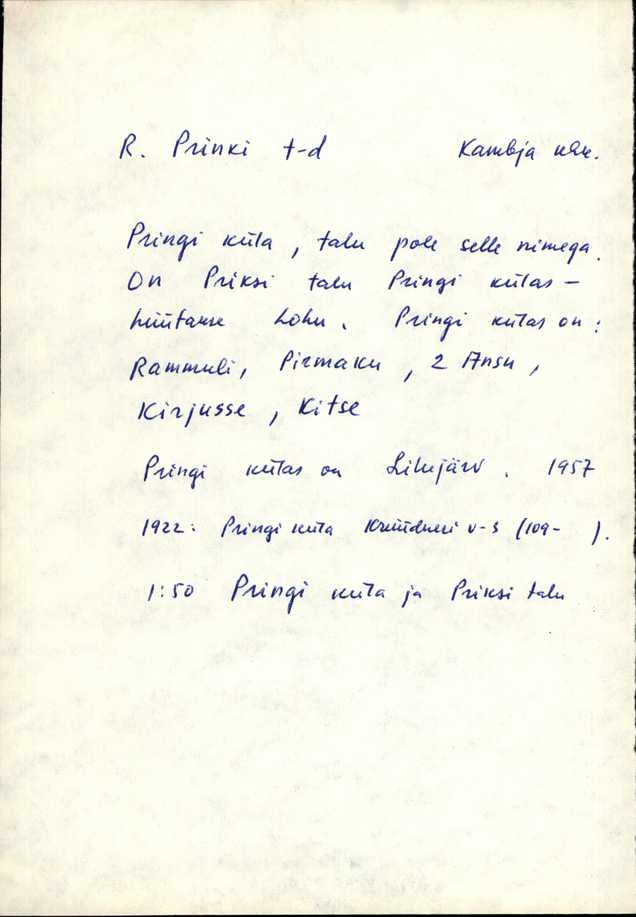 R. Prinki t-d Kambja khk.
Pringi küla, talu pole selle nimega.
On Priksi talu Pringi külas –
hüütakse Lohu. Pringi külas on:
Rammuli, Pirmaku, 2 Ansu,
Kirjusse, Kitse
Pringi külas on Lihujärv. 1957
1922: Pringi küla Krüüdneri v-s (109- ).
1:50 Pringi küla ja Priksi talu